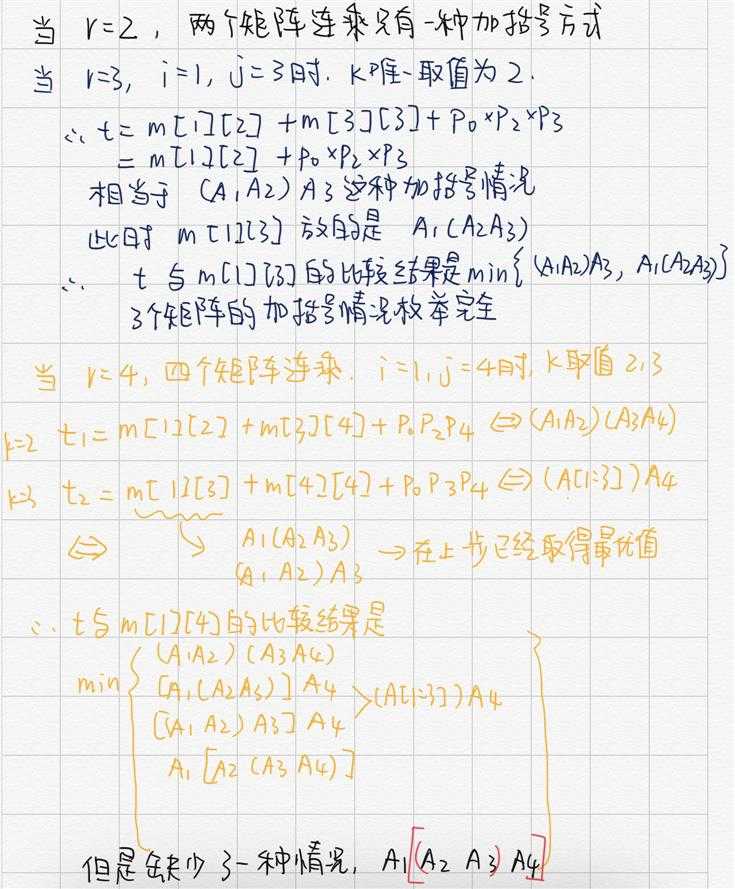 当 r=2, 两个矩阵连乘只有一种加括号方式
当 r=3, i=1, j=3时. k唯一取值为2.
∴ t = m[1][2] + m[3][3] + P₀×P₂×P₃
= m[1][2] + P₀×P₂×P₃
相当于 (A₁A₂)A₃ 这种加括号情况
此时 m[1][3] 放的是 A₁(A₂A₃)
∴ t与m[1][3]的比较结果是min{(A₁A₂)A₃, A₁(A₂A₃)}
3个矩阵的加括号情况枚举完全
当 r=4, 四个矩阵连乘. i=1, j=4时, k取值2,3
k=2 t₁ = m[1][2] + m[3][4] + P₀P₂P₄ ⇔ (A₁A₂)(A₃A₄)
k=3 t₂ = m[1][3] + m[4][4] + P₀P₃P₄ ⇔ (A[1:3])A₄
⇔ ↘ A₁(A₂A₃)
(A₁A₂)A₃ → 在上步已经取得最优值
∴ t与m[1][4]的比较结果是
min { (A₁A₂)(A₃A₄)
[A₁(A₂A₃)]A₄
[(A₁A₂)A₃]A₄ > (A[1:3])A₄
A₁[A₂(A₃A₄)] }
但是缺少了一种情况, A₁[(A₂A₃)A₄]